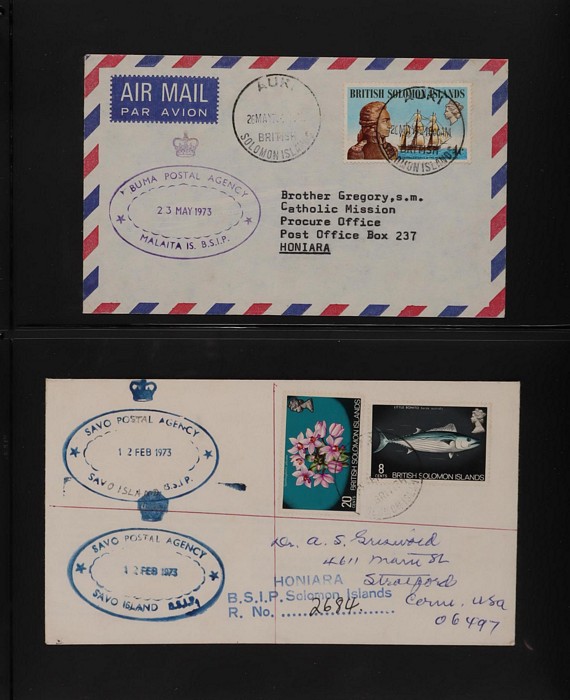 AIR MAIL
PAR AVION
AUKI
BRITISH
SOLOMON ISLANDS
BRITISH SOLOMON ISLANDS
AUKI
BRITISH
SOLOMON ISLANDS
BUMA POSTAL AGENCY
23 MAY 1973
MALAITA IS. B.S.I.P.
Brother Gregory,s.m.
Catholic Mission
Procure Office
Post Office Box 237
HONIARA
SAVO POSTAL AGENCY
12 FEB 1973
SAVO ISLAND B.S.I.P.
20 CENTS
BRITISH SOLOMON ISLANDS
8 CENTS
BRITISH SOLOMON ISLANDS
SAVO POSTAL AGENCY
12 FEB 1973
SAVO ISLAND B.S.I.P.
Dr. A. S. Griswold
4611 Main St
Stratford
Conn. USA
06497
HONIARA
B.S.I.P. Solomon Islands
R. No. 2684